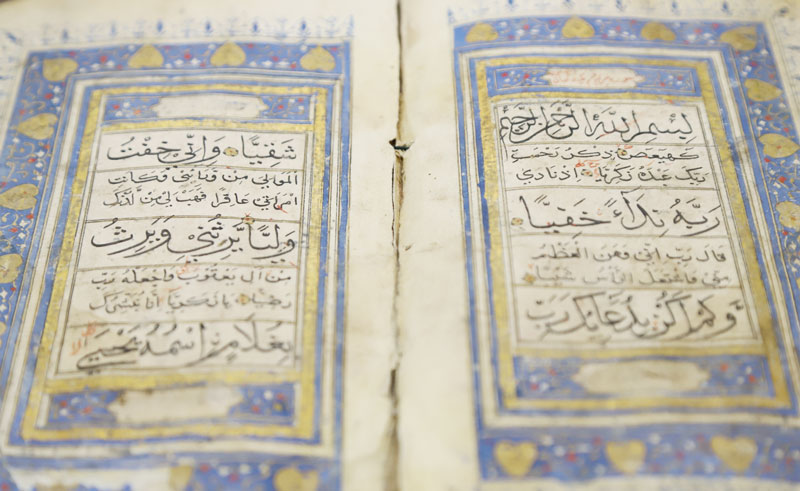 بسم الله الرحمن الرحيم
كهيعص ذكر رحمت
ربك عبده زكريا اذ نادى
ربه ندآء خفيا
قال رب انى وهن العظم
منى واشتعل الرأس شيبا
ولم اكن بدعائك رب
شقيا وانى خفت
الموالى من ورائى وكانت
امراتى عاقرا فهب لى من لدنك
وليا يرثنى ويرث
من ال يعقوب واجعله رب
رضيا يا زكريا انا نبشرك
بغلام اسمه يحيى